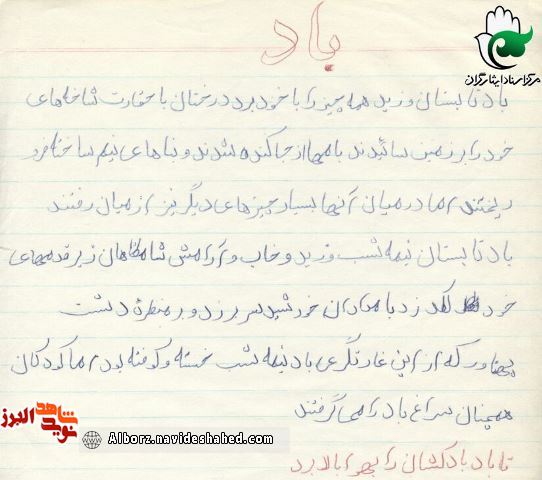 باد
مرکز اسناد ایثارگران
باد تابستان وزید همه چیز را با خود برد درختان با حقارت شاخه‌های
خود را بر زمین سائیدند بامها از جا کنده شدند و بناهای نیم ساخته فرو
ریختند اما در میان آنها بسیار چیزهای دیگر نیز از میان رفتند
باد تابستان نیمه شب وزید و خاب و آرامش شامگاهان زیر قدمهای
خود لگد زد بامدادان خورشید سر بر زد و بر منظرهٔ دشت
پهناور که از این غارتگری باد نیمه شب خسته و کوفته بود اما کودکان
همچنان سراغ باد را می‌گرفتند
تا باد بادکنکشان را بهوا بالا برد
نوید شاهد البرز
Alborz.navideshahed.com